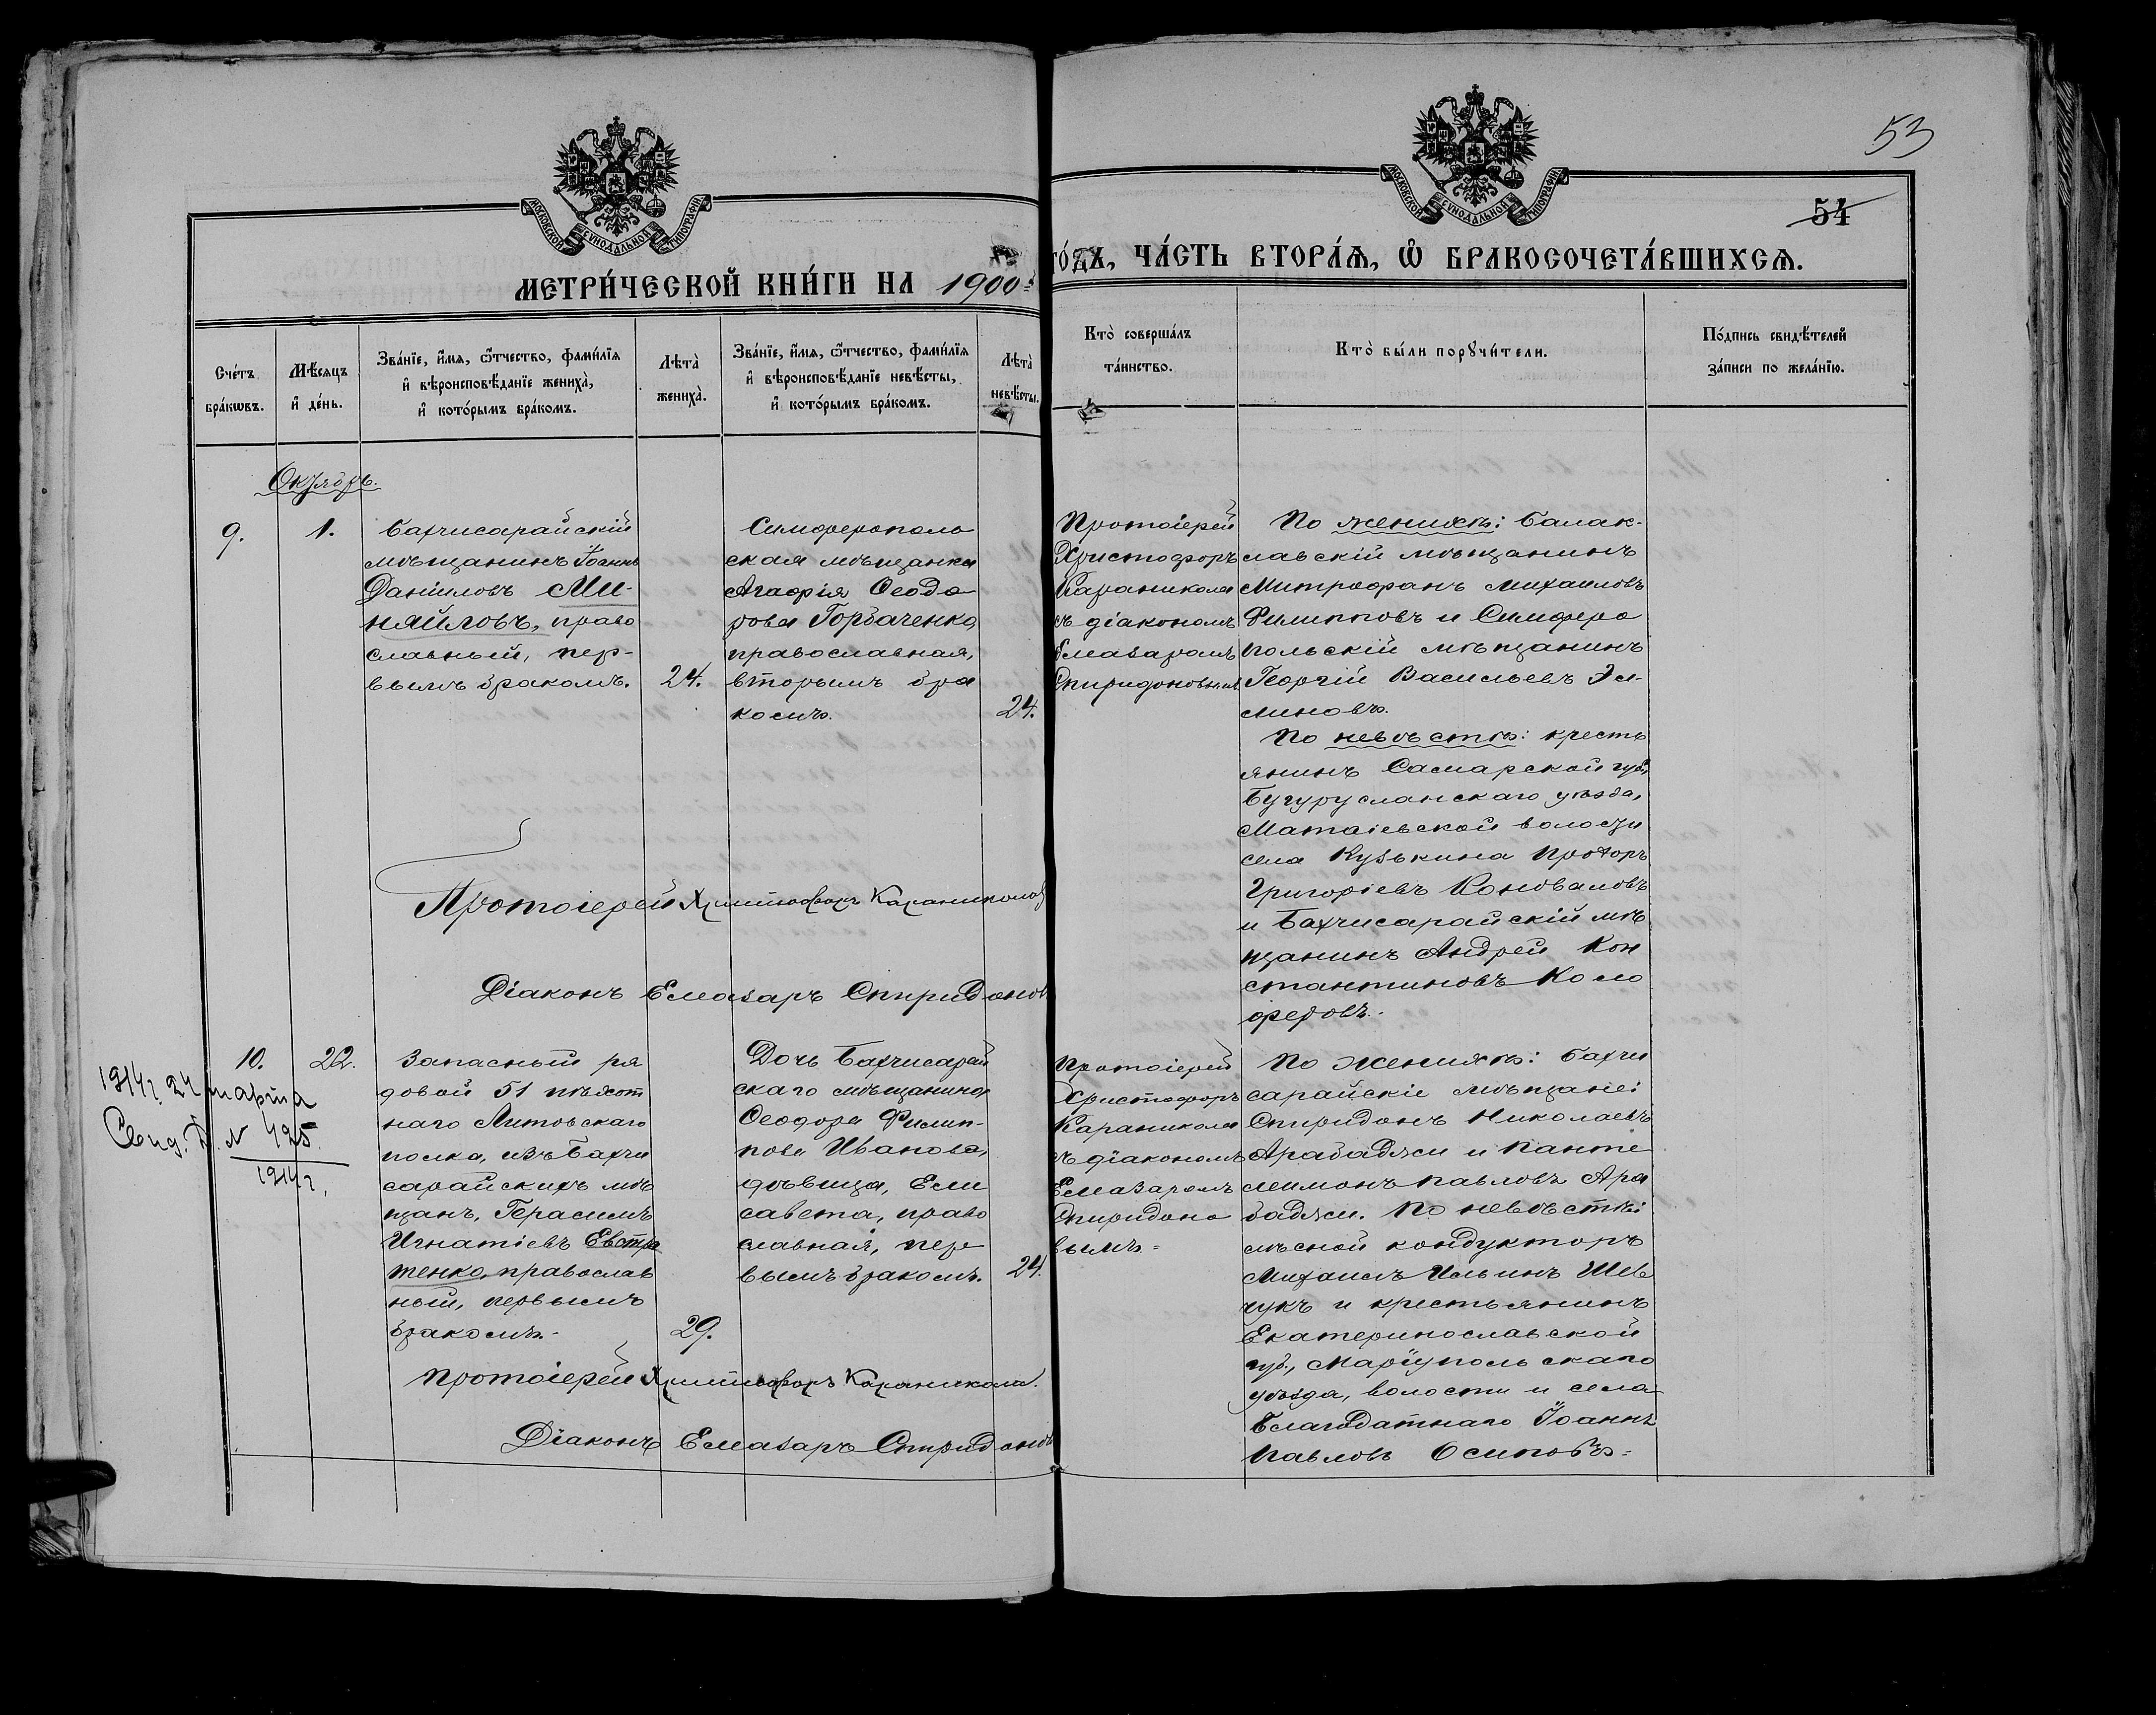 53
54
МОСКОВСКОЙ СѴНОДАЛЬНОЙ ТИПОГРАФІИ
МОСКОВСКОЙ СѴНОДАЛЬНОЙ ТИПОГРАФІИ
МЕТРИ́ЧЕСКОЙ КНИ́ГИ НА 1900й
ГО́ДЪ, ЧА́СТЬ ВТОРА́Ѧ, Ѡ҆ БРАКОСОЧЕТА́ВШИХСѦ.
Сче́тъ
бра́кѡвъ.
Мѣ́сяцъ
и҆ де́нь.
Зва́нїе, и҆́мѧ, ѻ҆́тчество, фами́лїѧ
и҆ вѣроисповѣ́данїе жениха̀,
и҆ кото́рымъ бра́комъ.
Лѣта̀
жениха̀.
Зва́нїе, и҆́мѧ, ѻ҆́тчество, фами́лїѧ
и҆ вѣроисповѣ́данїе невѣ́сты,
и҆ кото́рымъ бра́комъ.
Лѣта̀
невѣ́сты.
Кто̀ соверша́лъ
та́инство.
Кто̀ бы́ли порꙋчи́тели.
По́дпись свидѣ́телей
за́писи по жела́нїю.
Октябрь.
9.
1.
Бахчисарайскій
мѣщанинъ Іоаннъ
Даніиловъ Ми-
няйловъ, право
славный, пер-
вымъ бракомъ.
24.
Симферополь
ская мѣщанка
Агафія Ѳеодо
рова Горбаченко,
православная,
вторымъ бра
комъ.
24.
Протоіерей
Христофоръ
Караникола
съ діакономъ
Елеазаромъ
Спиридоновымъ
По женихѣ: Балак-
лавскій мѣщанинъ
Митрофанъ Михаиловъ
Филипповъ и Симферо
польскій мѣщанинъ
Георгій Васильевъ
линовъ.
По невѣстѣ: кресть
янинъ Самарской губ.,
Бугурусланскаго уѣзда,
Матвіевской волости
села Кузькина Прохоръ
Григоріевъ Коноваловъ
и Бахчисарайскій мѣ
щанинъ Андрей Кон
стантиновъ Коло
феровъ.
Протоіерей Христофоръ Караникола
Діаконъ Елеазаръ Спиридоновъ
1914 г. 24 марта
Свид. № 425
1914 г.
10.
22.
Запасный ря
довой 51 пѣхот
наго Литовскаго
полка, изъ Бахчи
сарайскихъ мѣ
щанъ, Герасимъ
Игнатіевъ Евстра
тенко, православ
ный, первымъ
бракомъ.
29.
Дочь Бахчисарай
скаго мѣщанина
Ѳеодора Филип-
пова Иванова,
дѣвица, Ели
савета, право
славная, пер
вымъ бракомъ.
24.
Протоіерей
Христофоръ
Караникола
съ діакономъ
Елеазаромъ
Спиридоно
вымъ
По женихѣ: Бахчи
сарайскіе мѣщане:
Спиридонъ Николаевъ
Арабаджи и Панте
леимонъ Павловъ Ара
баджи. По невѣстѣ:
лѣсной кондукторъ
Михаилъ Ильинъ Шев
чукъ и крестьянинъ
Екатеринославской
губ., Маріупольскаго
уѣзда, волости и села
Благодатнаго Іоаннъ
Павловъ Осиповъ
Протоіерей Христофоръ Караникола.
Діаконъ Елеазаръ Спиридоновъ